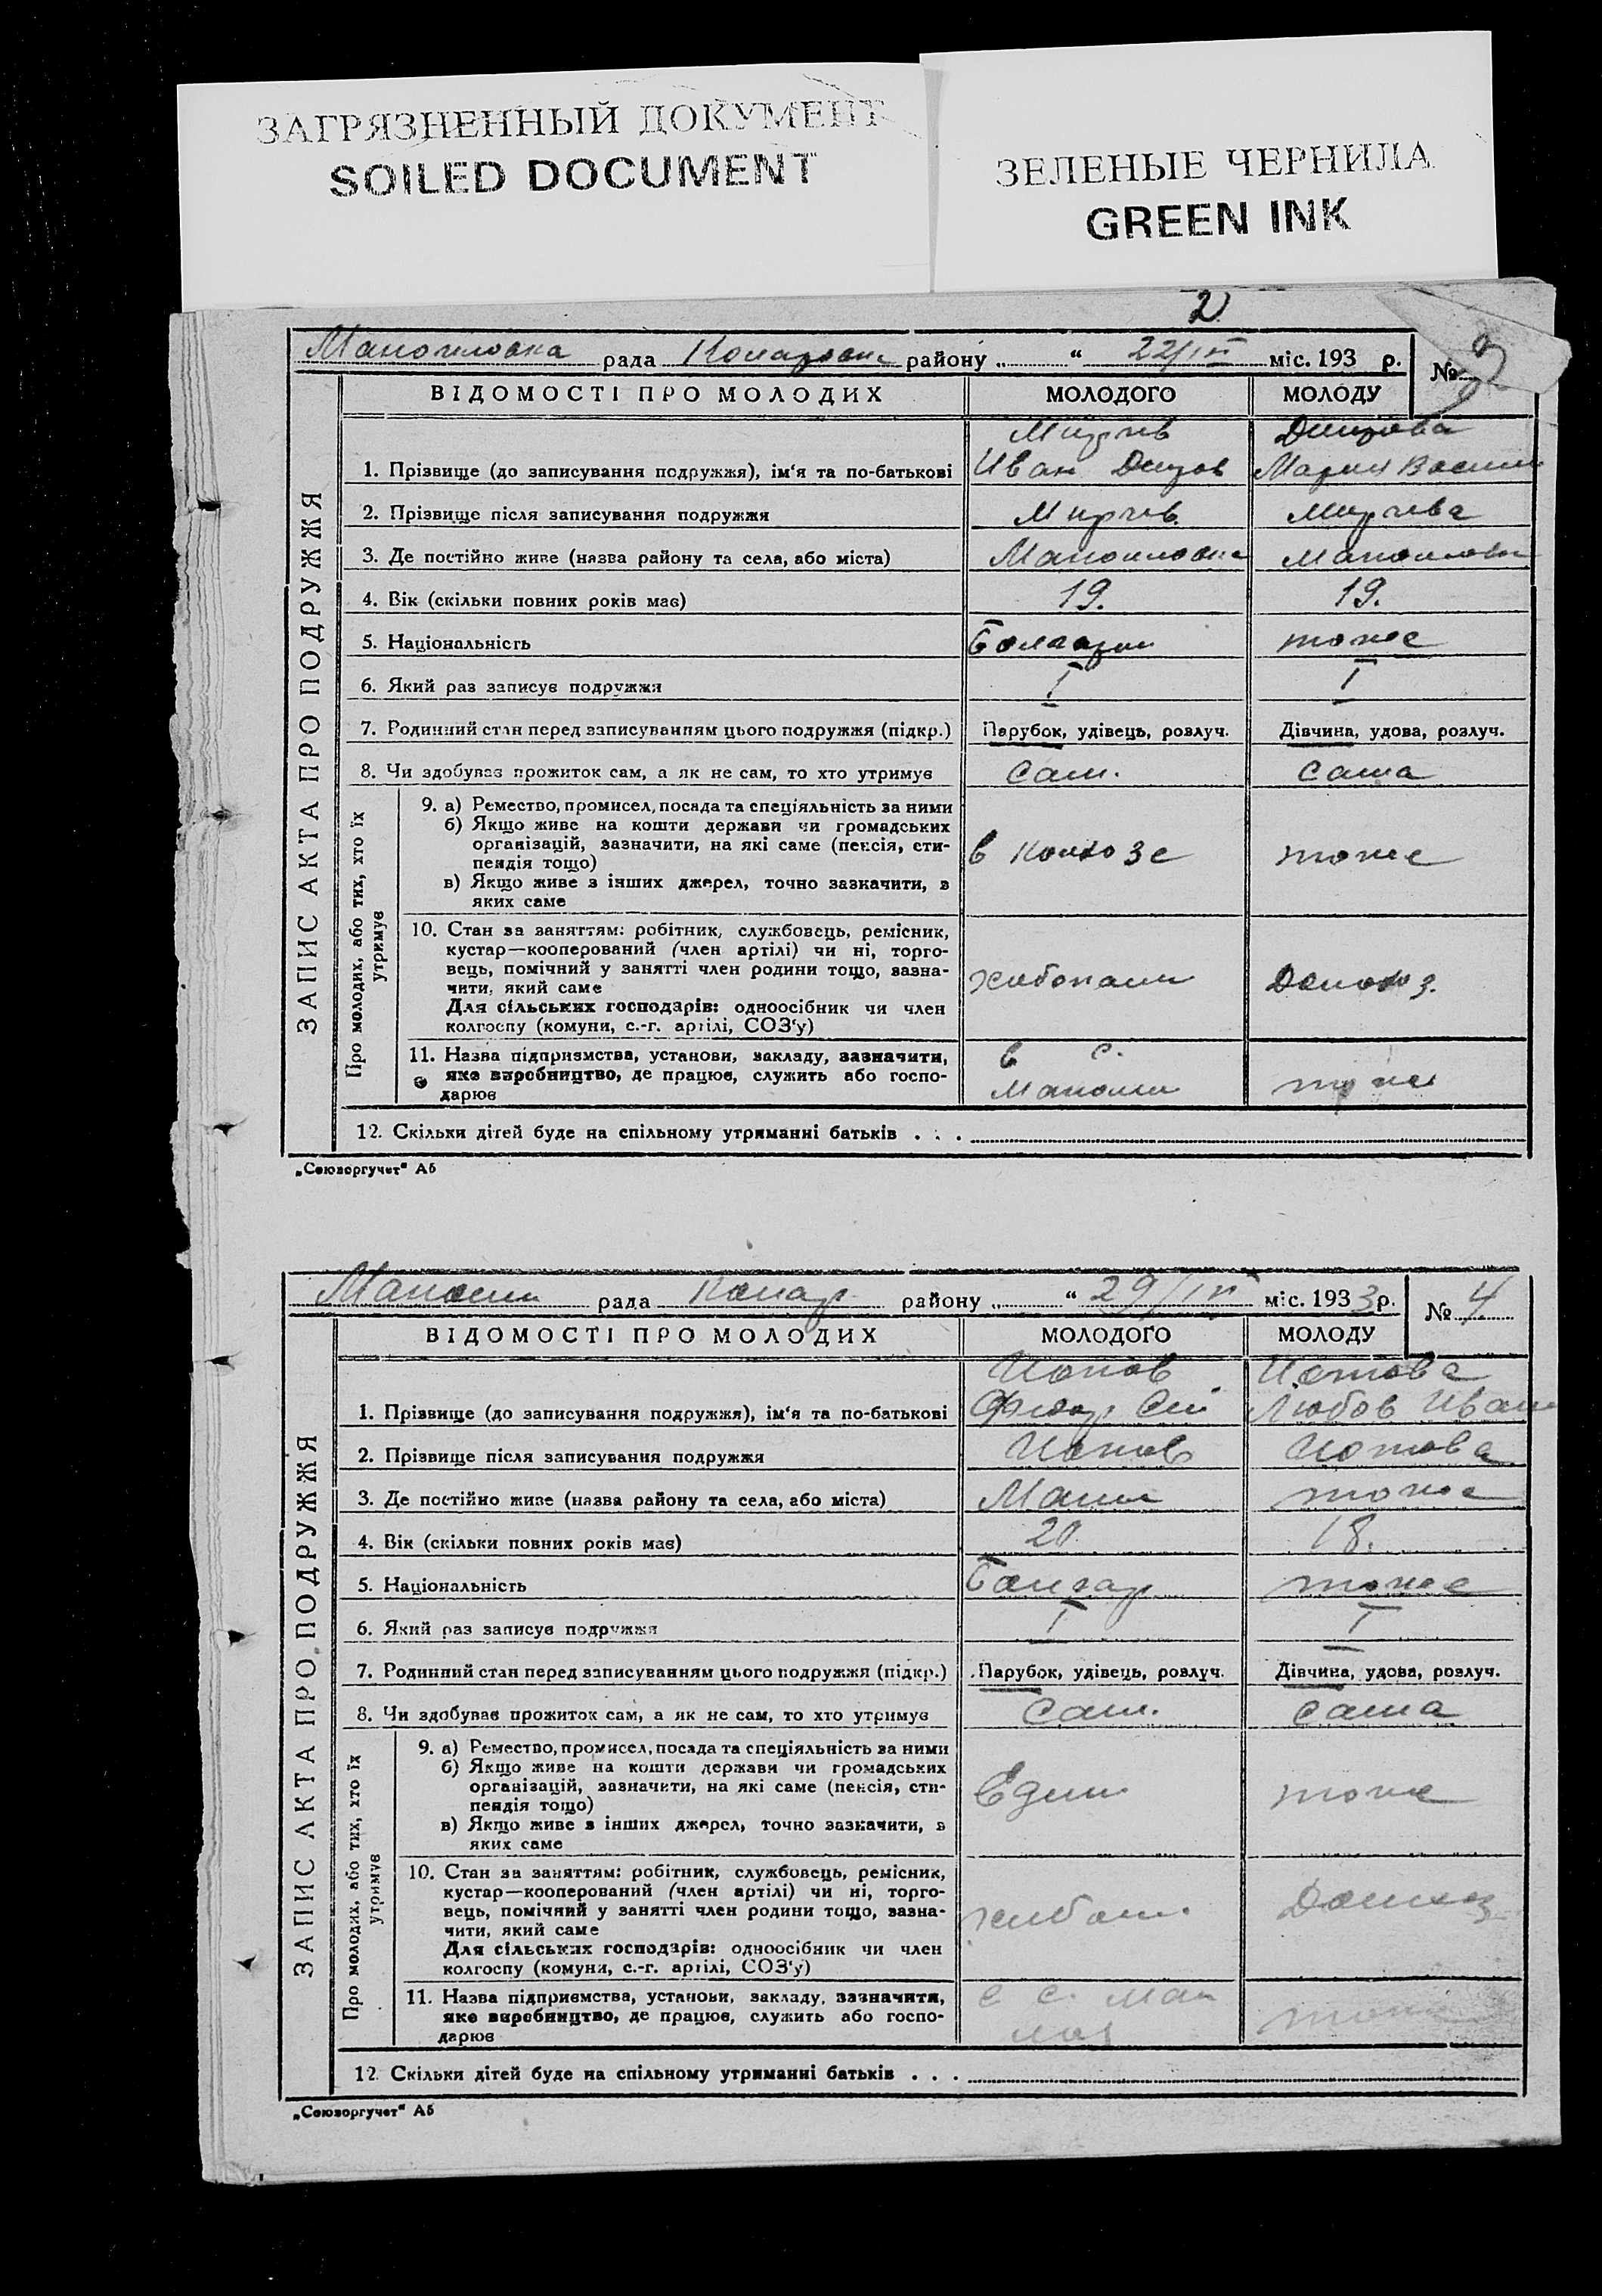 ЗАГРЯЗНЕННЫЙ ДОКУМЕНТ
SOILED DOCUMENT
ЗЕЛЕНЫЕ ЧЕРНИЛА
GREEN INK
2
рада району „ “ 22/ міс. 193 р.
№
ВІДОМОСТІ ПРО МОЛОДИХ МОЛОДОГО МОЛОДУ
ЗАПИС АКТА ПРО ПОДРУЖЖЯ
Мирчев
1. Прізвище (до записування подружжя), ім‘я та по-батькові Иван Мария
2. Прізвище після записування подружжя Мирчев Мирчева
3. Де постійно живе (назва району та села, або міста)
4. Вік (скільки повних років має) 19. 19.
5. Національність тоже
6. Який раз записує подружжя I I
7. Родинний стан перед записуванням цього подружжя (підкр.) Парубок, удівець, розлуч. Дівчина, удова, розлуч.
8. Чи здобував прожиток сам, а як не сам, то хто утримує сам. сама
Про молодих, або тих, хто їх утримує
9. а) Ремество, промисел, посада та спеціяльність за ними
б) Якщо живе на кошти держави чи громадських
організацій, зазначити, на які саме (пенсія, сти-
пендія тощо) в колхозе тоже
в) Якщо живе з інших джерел, точно зазначити, з
яких саме
10. Стан за заняттям: робітник, службовець, ремісник,
кустар—кооперований (член артілі) чи ні, торго-
вець, помічний у занятті член родини тощо, зазна-
чити, який саме
Для сільських господарів: одноосібник чи член
колгоспу (комуни, с.-г. артілі, СОЗ‘у)
11. Назва підприємства, установи, закладу, зазначити, в с.
яке виробництво, де працює, служить або госпо-
дарює тоже
12. Скільки дітей буде на спільному утриманні батьків . . .
„Союзоргучет“ А5
рада району „ “ 29/ міс. 1933р.
№ 4
ВІДОМОСТІ ПРО МОЛОДИХ МОЛОДОГО МОЛОДУ
ЗАПИС АКТА ПРО ПОДРУЖЖЯ
1. Прізвище (до записування подружжя), ім‘я та по-батькові Любов Иван
2. Прізвище після записування подружжя
3. Де постійно живе (назва району та села, або міста) тоже
4. Вік (скільки повних років має) 20 18.
5. Національність тоже
6. Який раз записує подружжя I I
7. Родинний стан перед записуванням цього подружжя (підкр.) Парубок, удівець, розлуч. Дівчина, удова, розлуч.
8. Чи здобував прожиток сам, а як не сам, то хто утримує сам. сама
Про молодих, або тих, хто їх утримує
9. а) Ремество, промисел, посада та спеціяльність за ними
б) Якщо живе на кошти держави чи громадських
організацій, зазначити, на які саме (пенсія, сти- тоже
пендія тощо)
в) Якщо живе з інших джерел, точно зазначити, з
яких саме
10. Стан за заняттям: робітник, службовець, ремісник,
кустар—кооперований (член артілі) чи ні, торго-
вець, помічний у занятті член родини тощо, зазна-
чити, який саме
Для сільських господарів: одноосібник чи член
колгоспу (комуни, с.-г. артілі, СОЗ‘у)
11. Назва підприємства, установи, закладу, зазначити,
яке виробництво, де працює, служить або госпо-
дарює
12. Скільки дітей буде на спільному утриманні батьків . . .
„Союзоргучет“ А5